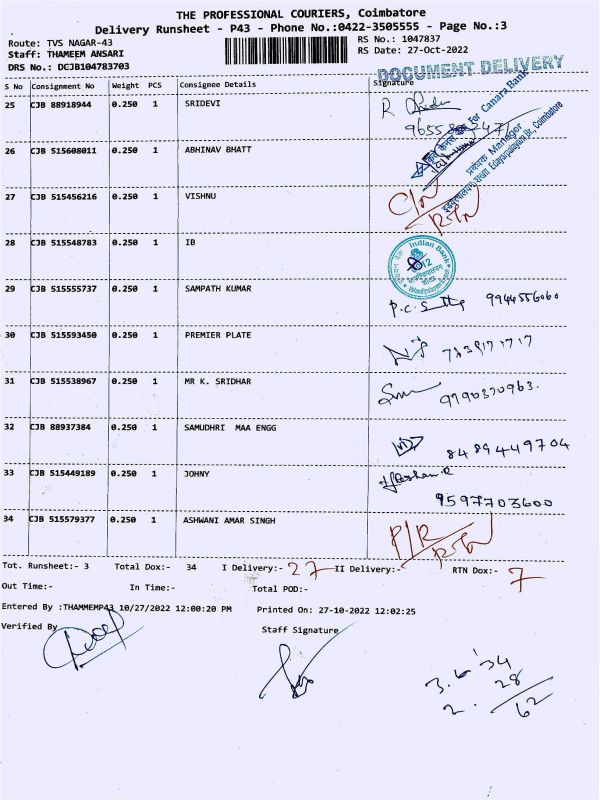 THE PROFESSIONAL COURIERS, Coimbatore
Delivery Runsheet - P43 - Phone No.:0422-3505555 - Page No.:3
Route: TVS NAGAR-43 RS No.: 1047837
Staff: THAMEEM ANSARI RS Date: 27-Oct-2022
DRS No.: DCJB104783703 DOCUMENT DELIVERY
S No Consignment No Weight PCS Consignee Details Signature
25 CJB 88918944 0.250 1 SRIDEVI
For Canara Bank
प्रबंधक Manager
Edayarpalayam Br, Coimbatore
26 CJB 515608011 0.250 1 ABHINAV BHATT
27 CJB 515456216 0.250 1 VISHNU RTN
28 CJB 515548783 0.250 1 IB Indian Bank
29 CJB 515555737 0.250 1 SAMPATH KUMAR 9944556060
30 CJB 515593450 0.250 1 PREMIER PLATE
31 CJB 515538967 0.250 1 MR K. SRIDHAR 9790370963.
32 CJB 88937384 0.250 1 SAMUDHRI MAA ENGG 8489449704
33 CJB 515449189 0.250 1 JOHNY 9597703600
34 CJB 515579377 0.250 1 ASHWANI AMAR SINGH P/R RTN
Tot. Runsheet:- 3 Total Dox:- 34 I Delivery:- 27 II Delivery:- RTN Dox:- 7
Out Time:- In Time:- Total POD:-
Entered By :THAMMEMP43 10/27/2022 12:00:20 PM Printed On: 27-10-2022 12:02:25
Verified By Staff Signature
34
28
62